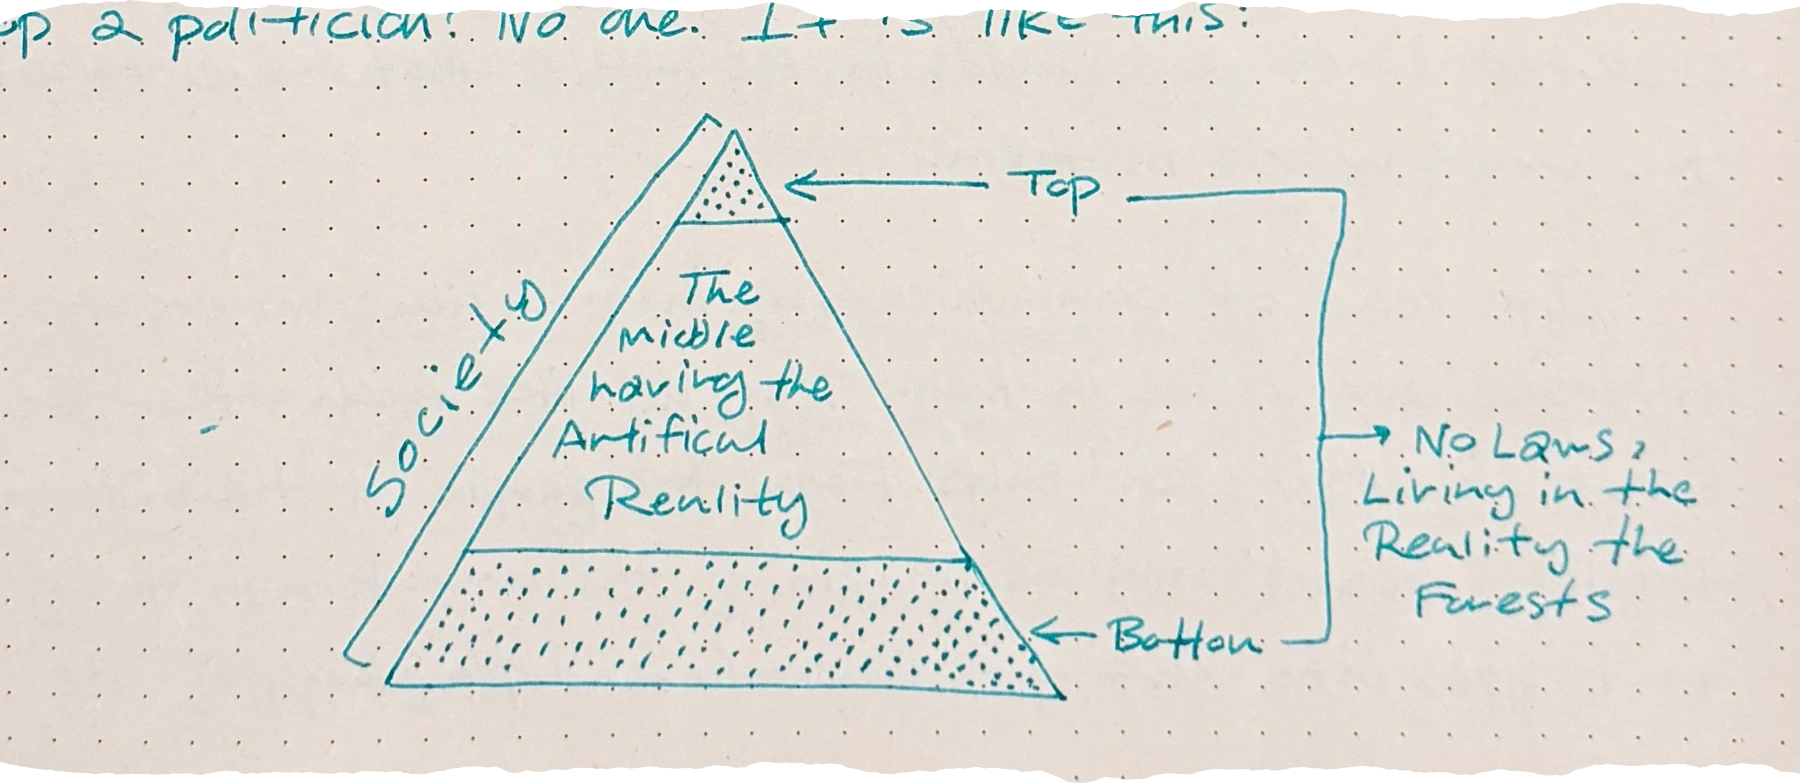 op a politician? No one. It is like this:
Top
Society
The
middle
having the
Artifical
Reality
No Laws,
Living in the
Reality the
Forests
Bottom